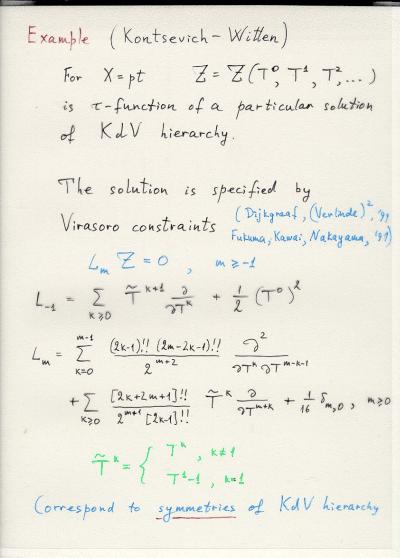 Example (Kontsevich-Witten)
For X=pt Z = Z(T⁰, T¹, T², ...)
is τ-function of a particular solution
of KdV hierarchy.
The solution is specified by
Virasoro constraints (Dijkgraaf, (Verlinde)², '91
Fukuma, Kawai, Nakayama, '91)
L_m Z = 0 , m ≥ -1
L_{-1} = ∑_{k≥0} T̃^{k+1} ∂/∂T^k + 1/2 (T⁰)²
L_m = ∑_{k=0}^{m-1} (2k-1)!! (2m-2k-1)!! / 2^{m+2} ∂² / ∂T^k ∂T^{m-k-1}
+ ∑_{k≥0} [2k+2m+1]!! / 2^{m+1} [2k-1]!! T̃^k ∂/∂T^{m+k} + 1/16 δ_{m,0} , m≥0
T̃^k = { T^k , k≠1
T¹-1 , k=1
Correspond to symmetries of KdV hierarchy